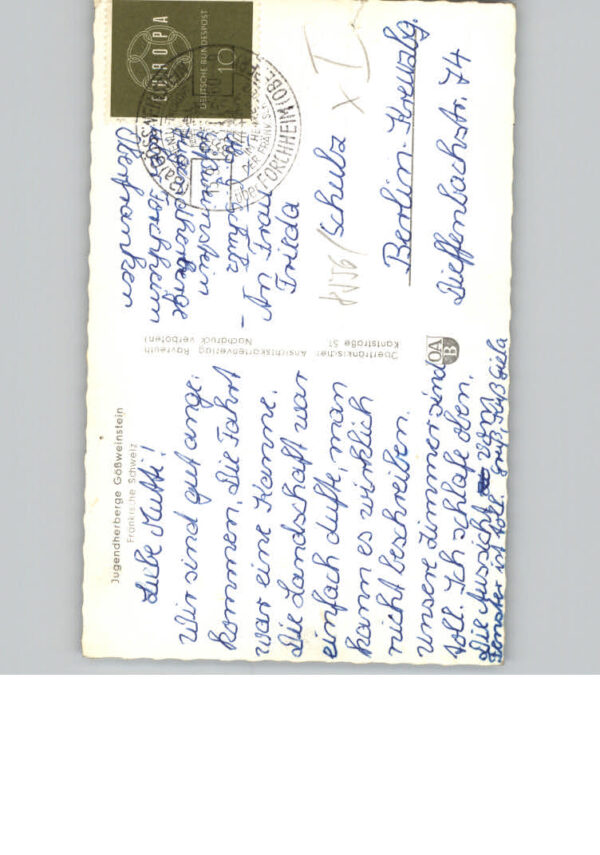 Jugendherberge Gößweinstein
Fränkische Schweiz
Liebe Mutti!
Wir sind gut ange-
kommen. Die Fahrt
war eine Kanne.
Die Landschaft war
einfach dufte, man
kann es wirklich
nicht beschreiben.
Unsere Zimmer sind
toll. Ich schlafe oben.
Die Aussicht vom
Fenster ist toll. Gruß, Kuß
Oberfränkischer Ansichtskartenverlag Bayreuth
Kantstraße 51 Nachdruck verboten!
OA
B
EUROPA
DEUTSCHE BUNDESPOST
10
GÖSSWEINSTEIN
ÜBER FORCHHEIM
Schulz
Gößweinstein
Jugendherberge
Forchheim
Oberfranken
An Frau
Frieda
Schulz
X I
Berlin-Kreuzbg.
Dieffenbachstr. 74